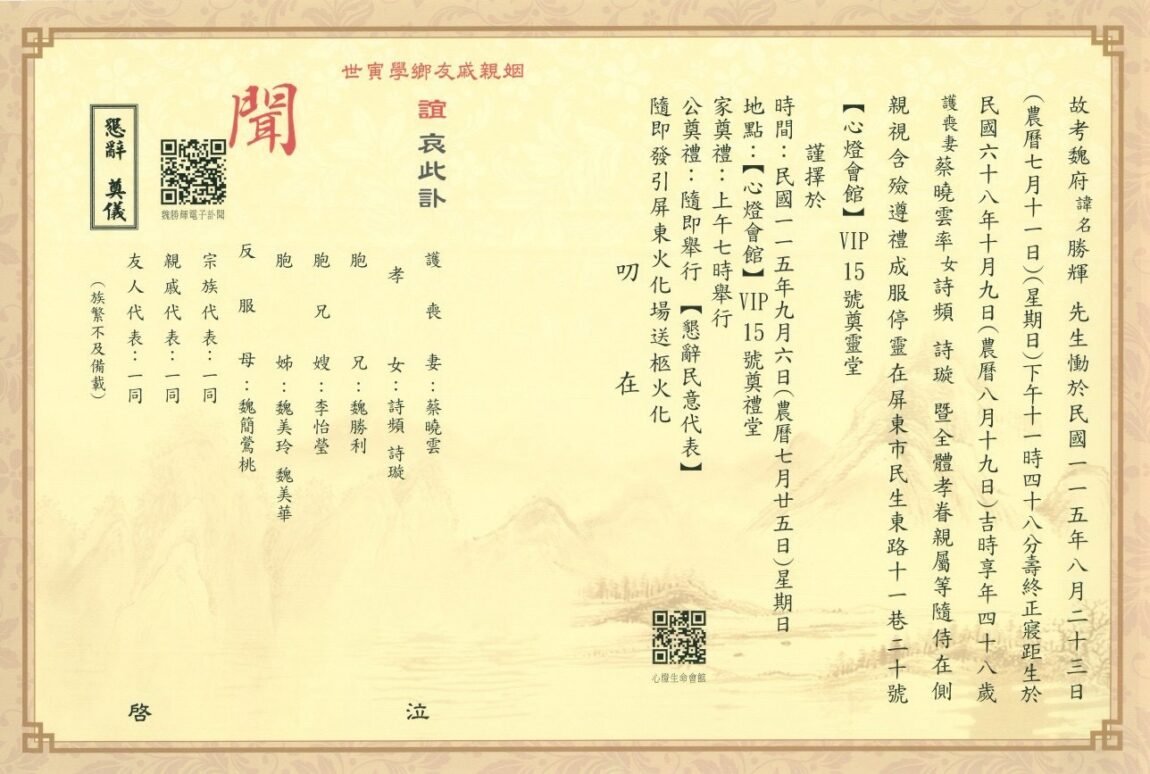 故考魏府諱名勝輝 先生慟於民國一一五年八月二十三日
(農曆七月十一日)(星期日)下午十一時四十八分壽終正寢距生於
民國六十八年十月九日(農曆八月十九日)吉時享年四十八歲
護喪妻蔡曉雲率女詩頻 詩璇 暨全體孝眷親屬等隨侍在側
親視含殮遵禮成服停靈在屏東市民生東路十一巷二十號
【心燈會館】VIP 15 號奠靈堂
謹擇於
時間：民國一一五年九月六日(農曆七月廿五日)星期日
地點：【心燈會館】VIP 15 號奠禮堂
家奠禮：上午七時舉行
公奠禮：隨即舉行 【懇辭民意代表】
隨即發引屏東火化場送柩火化
叨 在
心燈生命會館
姻親戚友鄉學寅世
誼哀此訃
聞
護喪妻：蔡曉雲
孝女：詩頻 詩璇
胞兄：魏勝利
胞兄嫂：李怡瑩
胞姊：魏美玲 魏美華
反服母：魏簡鶯桃
宗族代表：一同
親戚代表：一同
友人代表：一同
(族繁不及備載)
泣
啓
魏勝輝電子訃聞
懇辭 奠儀